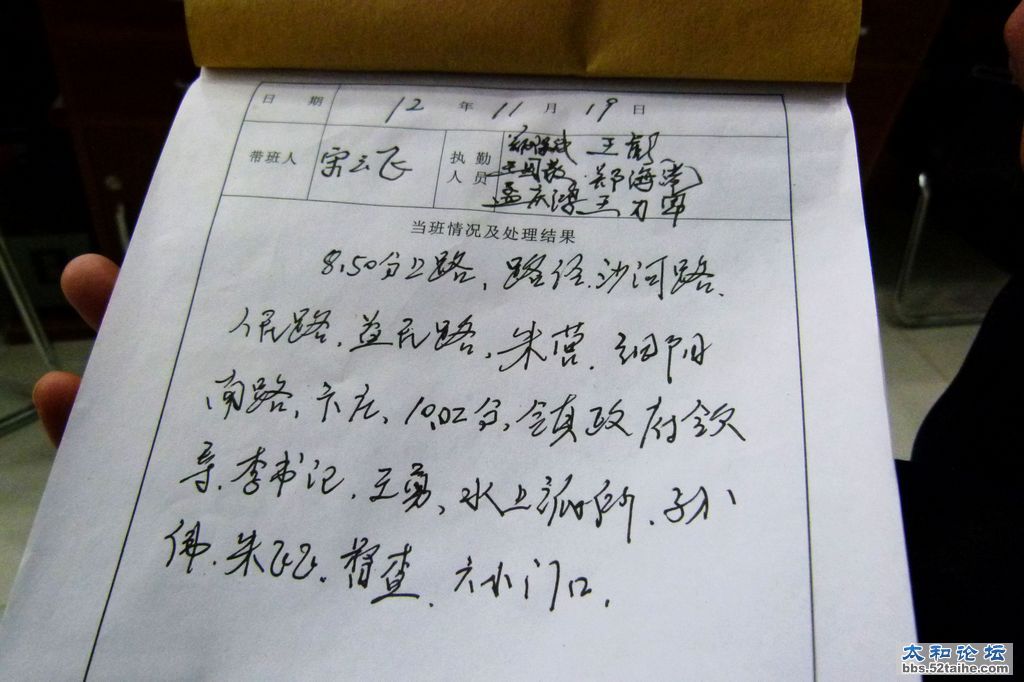 日 期 12 年 11 月 19 日
带班人 宋云飞 执勤人员 王彭
郑海
王力军
当班情况及处理结果
8.50分上路、路经.沙河路.
人民路.益民路、朱营.细阳
南路、卞庄、10.02分、镇政府
导.李书记.王勇、水上派所.孙小
佛.朱飞飞.督查. 门口.
太和论坛
bbs.52taihe.com